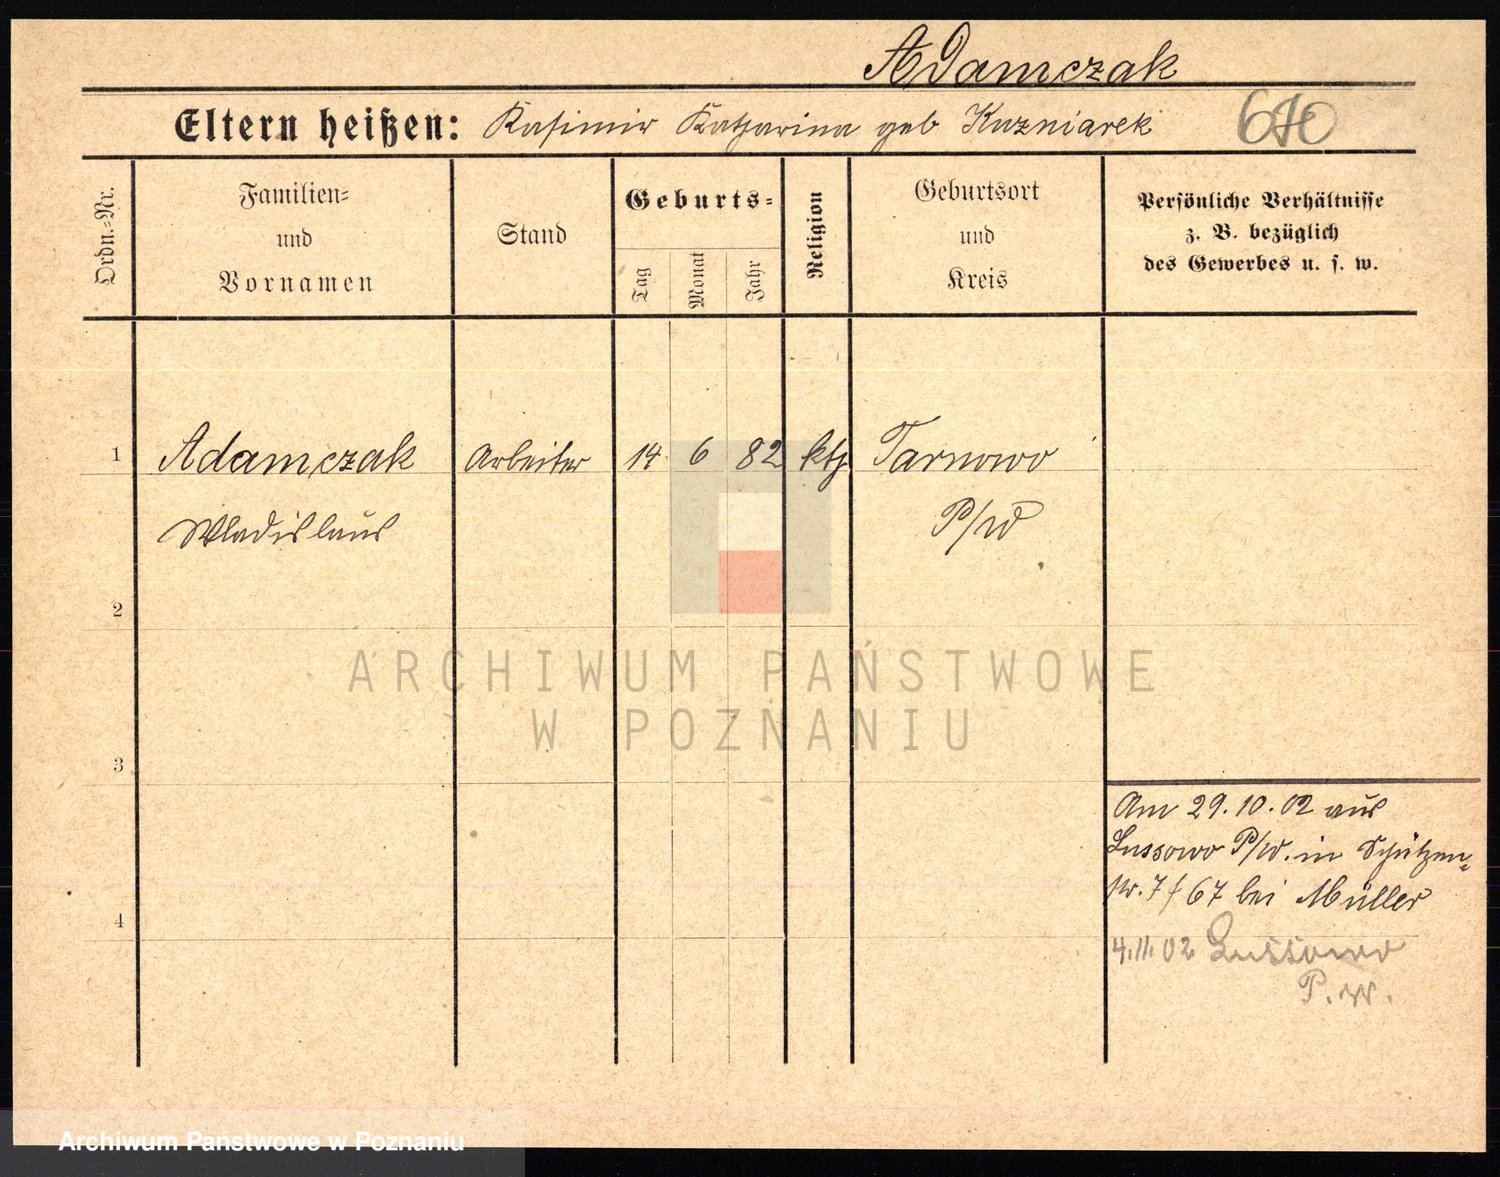 Adamczak
Eltern heißen: Kasimir Katharina geb Kuzniarek
Ordn.-Nr.
Familien-
und
Vornamen
Stand
Geburts-
Tag
Monat
Jahr
Religion
Geburtsort
und
Kreis
Persönliche Verhältnisse
z. B. bezüglich
des Gewerbes u. s. w.
1 Adamczak Arbeiter 14 6 82 kth Tarnowo
Wladislaus P/W
2
ARCHIWUM PAŃSTWOWE
W POZNANIU
3
Am 29.10.02 aus
Lussowo P/W. in Schützen-
str. 7/67 bei Müller
4
4.11.02 Lussowo
P. W.
Archiwum Państwowe w Poznaniu